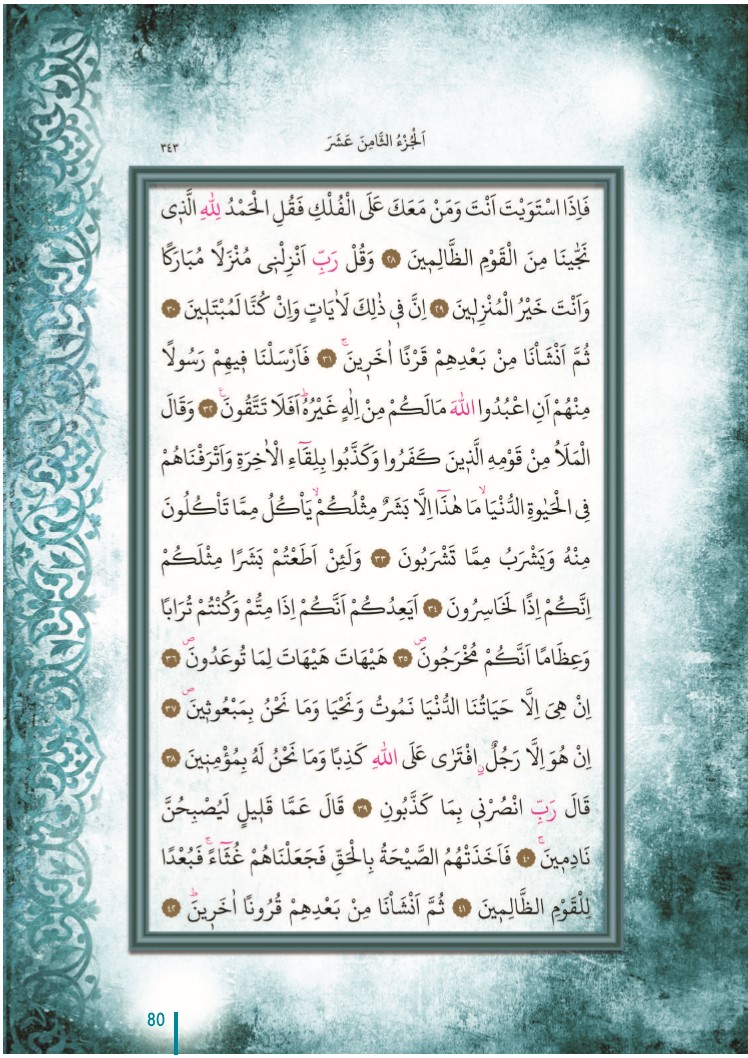 اَلْجُزْءُ الثَّامِنَ عَشَرَ
٣٤٣
فَاِذَا اسْتَوَيْتَ اَنْتَ وَمَنْ مَعَكَ عَلَى الْفُلْكِ فَقُلِ الْحَمْدُ لِلّٰهِ الَّذ۪ى
نَجّٰينَا مِنَ الْقَوْمِ الظَّالِم۪ينَ ٢٨ وَقُلْ رَبِّ اَنْزِلْن۪ى مُنْزَلًا مُبَارَكًا
وَاَنْتَ خَيْرُ الْمُنْزِل۪ينَ ٢٩ اِنَّ ف۪ى ذٰلِكَ لَاٰيَاتٍ وَاِنْ كُنَّا لَمُبْتَل۪ينَ ٣٠
ثُمَّ اَنْشَاْنَا مِنْ بَعْدِهِمْ قَرْنًا اٰخَر۪ينَۚ ٣١ فَاَرْسَلْنَا ف۪يهِمْ رَسُولًا
مِنْهُمْ اَنِ اعْبُدُوا اللّٰهَ مَالَكُمْ مِنْ اِلٰهٍ غَيْرُهُۜ اَفَلَا تَتَّقُونَ۟ ٣٢ وَقَالَ
الْمَلَاُ مِنْ قَوْمِهِ الَّذ۪ينَ كَفَرُوا وَكَذَّبُوا بِلِقَٓاءِ الْاٰخِرَةِ وَاَتْرَفْنَاهُمْ
فِى الْحَيٰوةِ الدُّنْيَاۙ مَا هٰذَٓا اِلَّا بَشَرٌ مِثْلُكُمْۙ يَاْكُلُ مِمَّا تَاْكُلُونَ
مِنْهُ وَيَشْرَبُ مِمَّا تَشْرَبُونَ ٣٣ وَلَئِنْ اَطَعْتُمْ بَشَرًا مِثْلَكُمْ
اِنَّكُمْ اِذًا لَخَاسِرُونَ ٣٤ اَيَعِدُكُمْ اَنَّكُمْ اِذَا مِتُّمْ وَكُنْتُمْ تُرَابًا
وَعِظَامًا اَنَّكُمْ مُخْرَجُونَۖ ٣٥ هَيْهَاتَ هَيْهَاتَ لِمَا تُوعَدُونَۖ ٣٦
اِنْ هِىَ اِلَّا حَيَاتُنَا الدُّنْيَا نَمُوتُ وَنَحْيَا وَمَا نَحْنُ بِمَبْعُوث۪ينَۖ ٣٧
اِنْ هُوَ اِلَّا رَجُلٌۨ افْتَرٰى عَلَى اللّٰهِ كَذِبًا وَمَا نَحْنُ لَهُ بِمُؤْمِن۪ينَ ٣٨
قَالَ رَبِّ انْصُرْن۪ى بِمَا كَذَّبُونِ ٣٩ قَالَ عَمَّا قَل۪يلٍ لَيُصْبِحُنَّ
نَادِم۪ينَۚ ٤٠ فَاَخَذَتْهُمُ الصَّيْحَةُ بِالْحَقِّ فَجَعَلْنَاهُمْ غُثَٓاءًۚ فَبُعْدًا
لِلْقَوْمِ الظَّالِم۪ينَ ٤١ ثُمَّ اَنْشَاْنَا مِنْ بَعْدِهِمْ قُرُونًا اٰخَر۪ينَۜ ٤٢
80